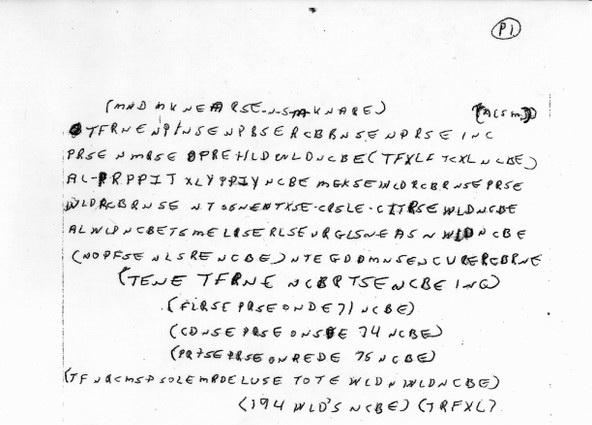 P1
(MND MKNEARSE-N-S-MKNARE) (ACSM)
TFRNENPTNSENPBSERCBBNSENPRSEINC
PRSENMRSEOPREHLDWLDNCBE(TFXLFTCXLNCBE)
AL-PRPPIT XLYPPIYNCBE MEKSEWLDRCBRNSEPRSE
WLDRCBRNSE NTOSNENTXSE-CRSLE-CITRSEWLDNCBE
ALWLDNCBETSMELRSERLSEURGLSNEASNWLDNCBE
(NOPFSENLSRENCBE)NTEGDDMNSENCURERCBRNE
(TENE TFRNE NCBRTSENCBEING)
(FLRSEPRSEONDE71NCBE)
(CDNSEPRSEONSDE74NCBE)
(PRTSEPRSEONREDE75NCBE)
(TFNRCMSPSOLEMRDELUSETOTEWLDNWLDNCBE)
(194WLD'SNCBE)(TRFXL)